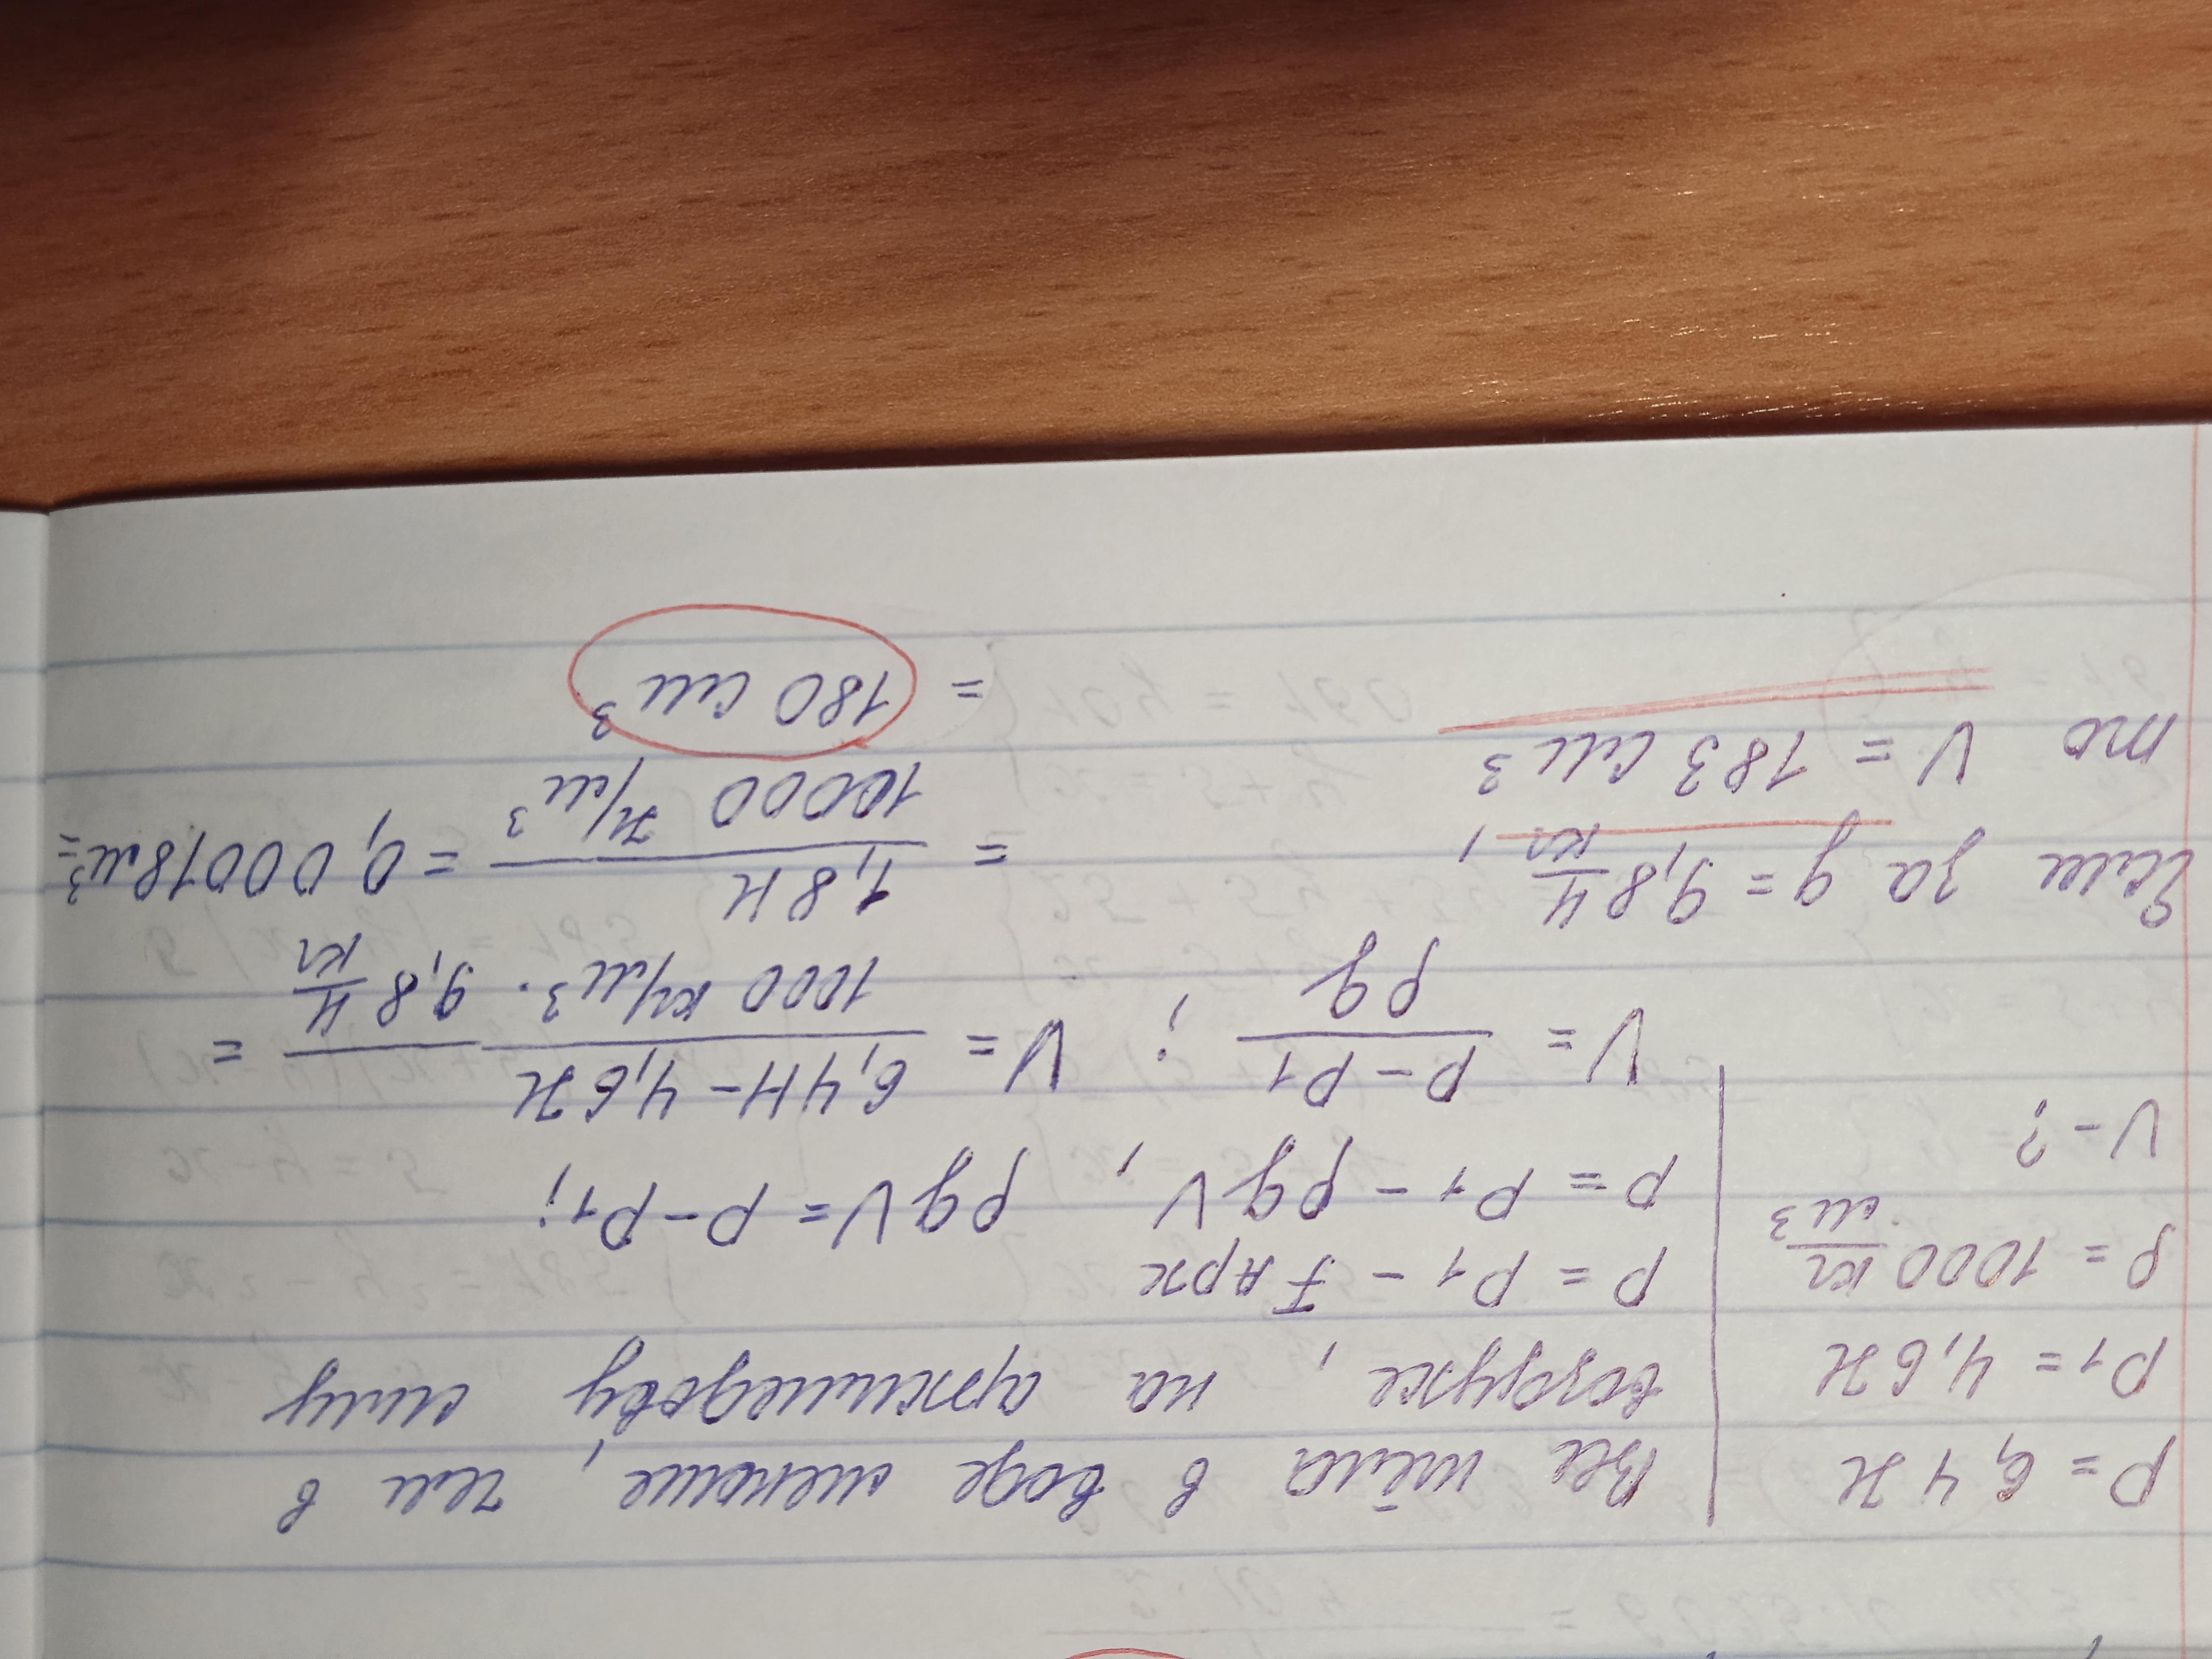 P = 6,4 Н
P1 = 4,6 Н
ρ = 1000 кг/м³
V - ?
Вес тела в воде меньше, чем в
воздухе, на архимедову силу
P = P1 - Fарх
P = P1 - ρgV, ρgV = P - P1;
V = (P - P1)/(ρg); V = (6,4Н - 4,6Н)/(1000 кг/м³ · 9,8 Н/кг) =
= 1,8Н/(10000 Н/м³) = 0,00018м³ =
= 180 см³
Если за g = 9,8 Н/кг,
то V = 183 см³